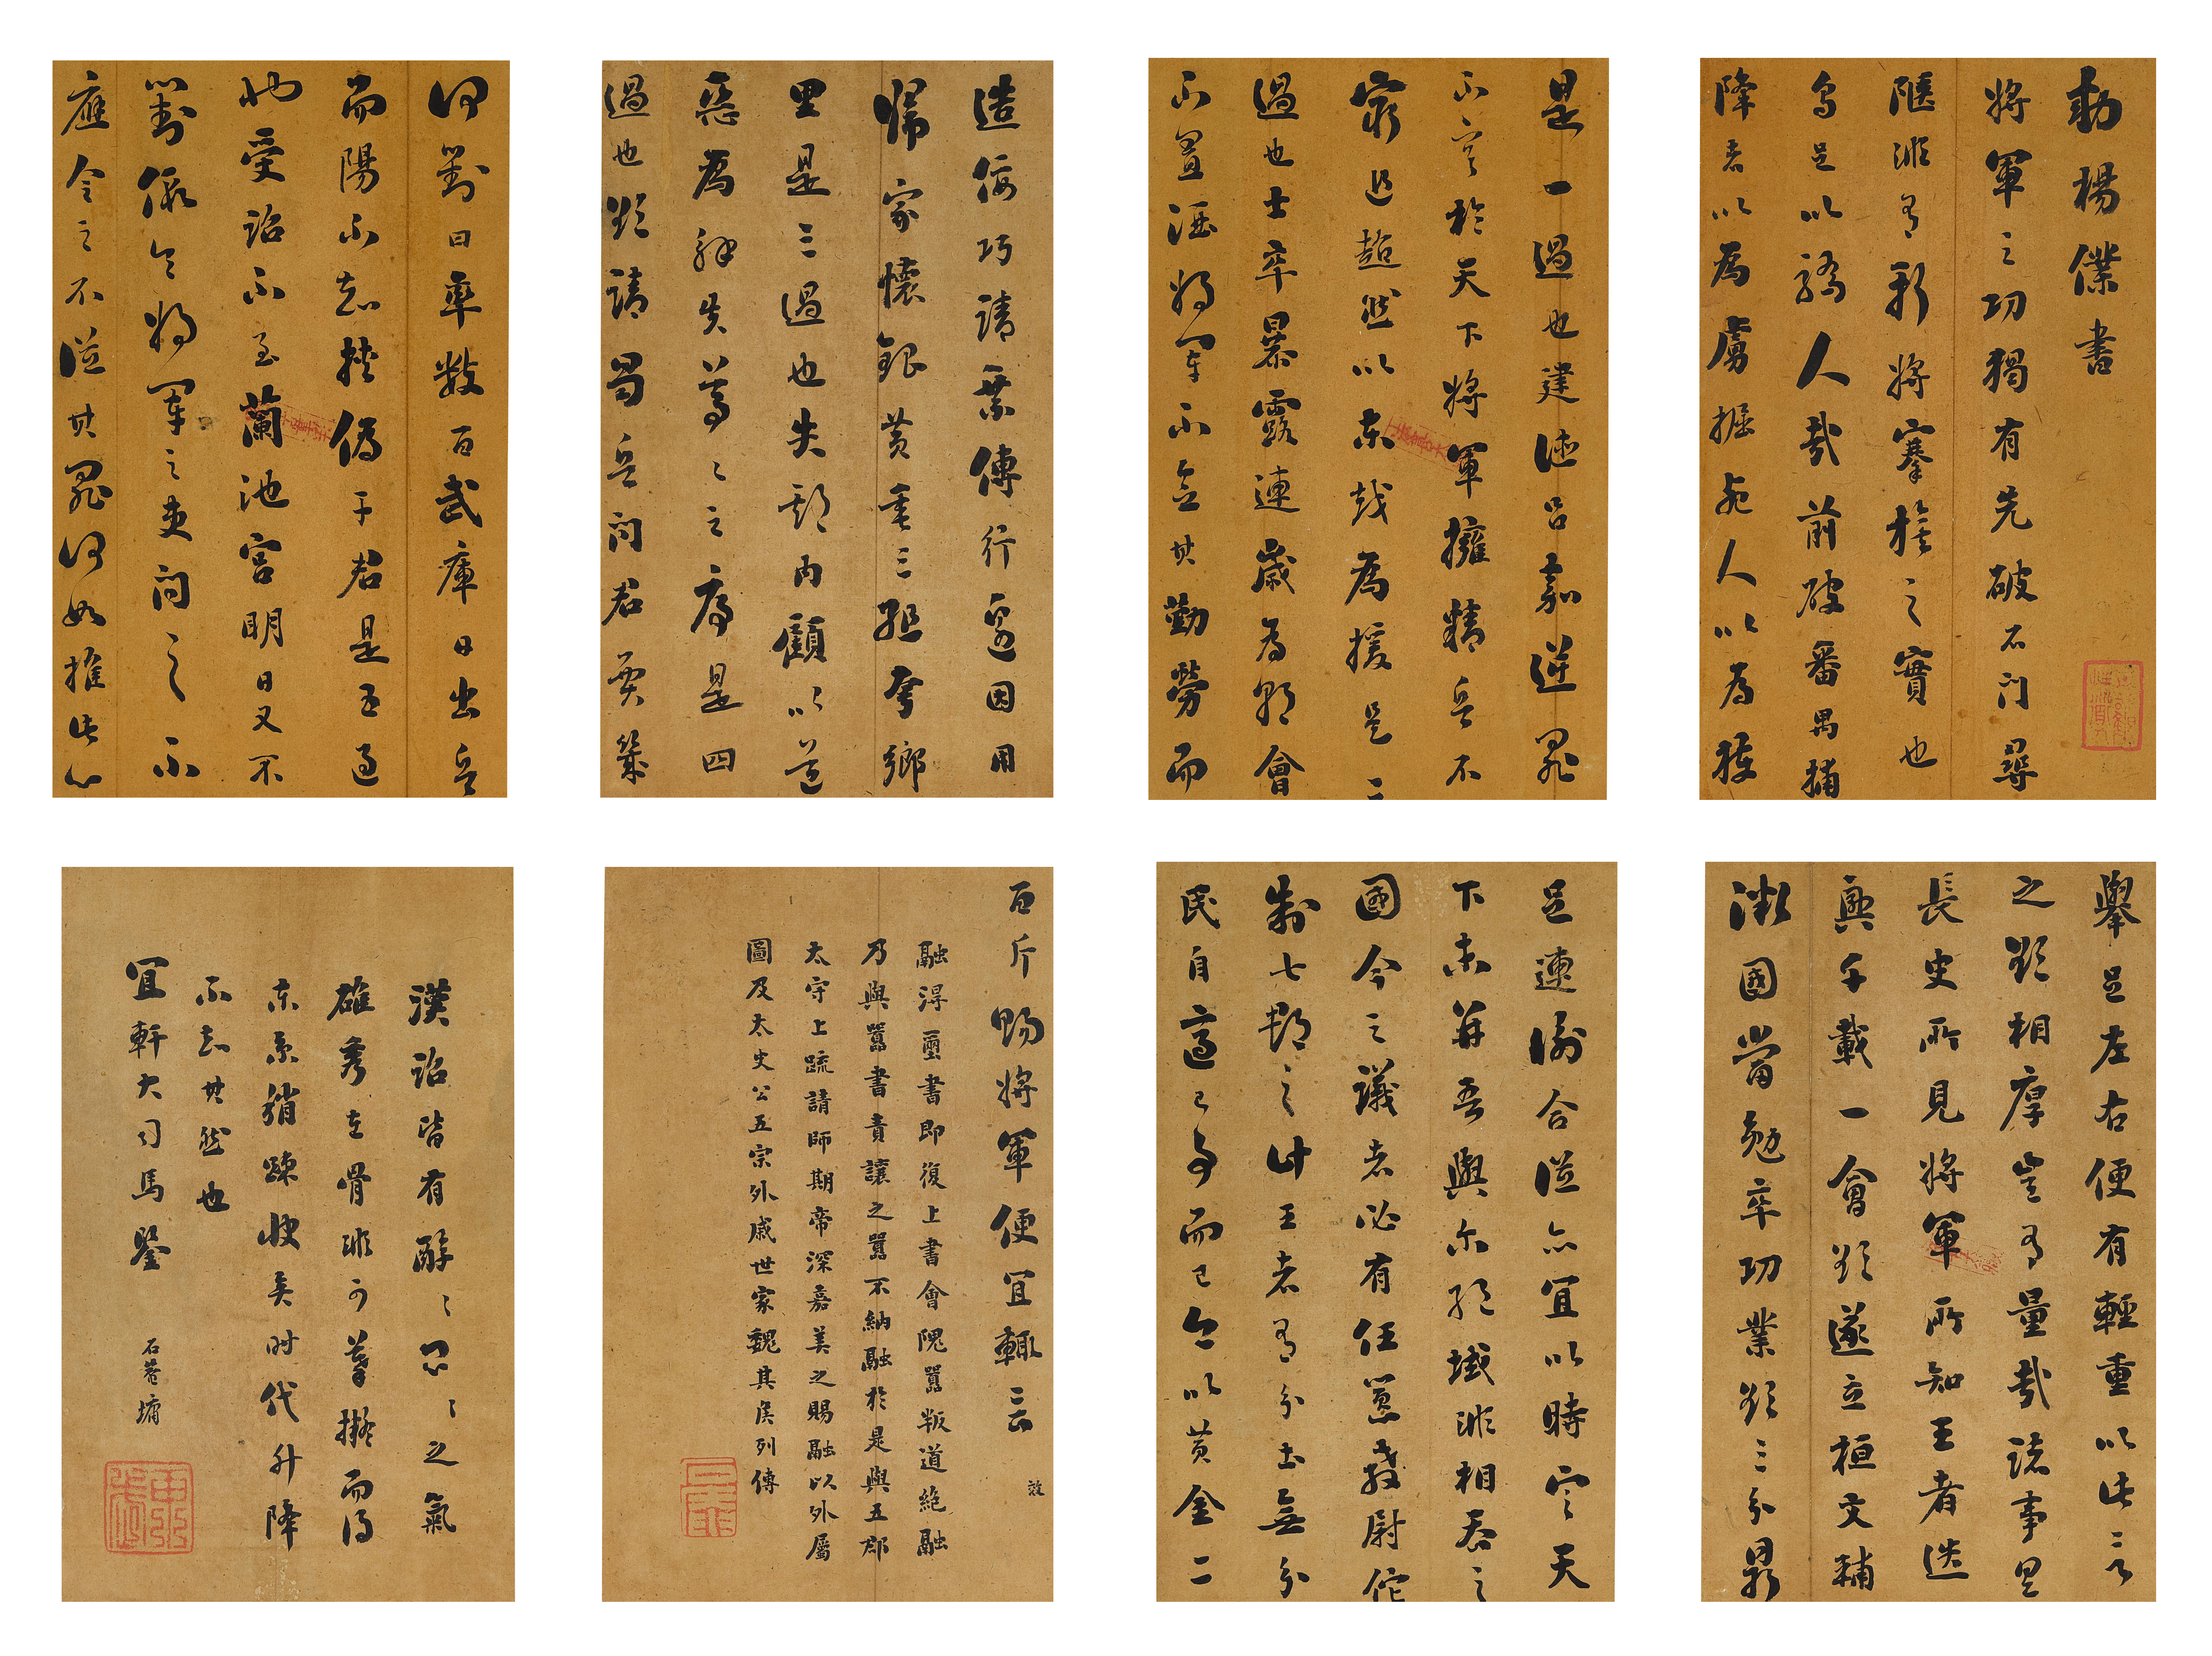 勅楊僕書
將軍之功獨有先破石門尋
陿非有斬將搴旗之實也
烏足以驕人哉前破番禺捕
降者以為虜掘死人以為獲
是一過也建德呂嘉逆罪
不容於天下將軍擁精兵不
窮追超然以東越為援是二
過也士卒暴露連歲為朝會
不置酒將軍不念其勤勞而
造佞巧請乘傳行塞因用
歸家懷銀黃垂三組夸鄉
里是三過也失期內顧以道
惡為解失尊〻之序是四
過也欲請蜀兵問君賈幾
何對曰率數百武庫日出兵
而陽不知挾偽干君是五過
也受詔不至蘭池宮明日又不
對假令將軍之吏問之不
應令之不從其罪何如推此心
舉足左右便有輕重以此言
之欲相厚豈有量哉諸事具
長史所見將軍所知王者迭
興千載一會欲遂立桓文輔
微國當勉卒功業欲三分鼎
足連衡合從亦宜以時定天
下未并吾與爾絕域非相吞之
國今之議者必有任囂教尉佗
制七郡之計王者有分土無分
民自適己事而已今以黃金二
百斤賜將軍便宜輒言 效
融得璽書即復上書會隗囂叛道絕融
乃與囂書責讓之囂不納融於是與五郡
太守上疏請師期帝深嘉美之賜融以外屬
圖及太史公五宗外戚世家魏其侯列傳
漢詔皆有醇〻悶〻之氣
雄秀在骨非可摹擬而得
東京稍疎快矣時代升降
不知其然也
宜軒大司馬鑒
石菴墉